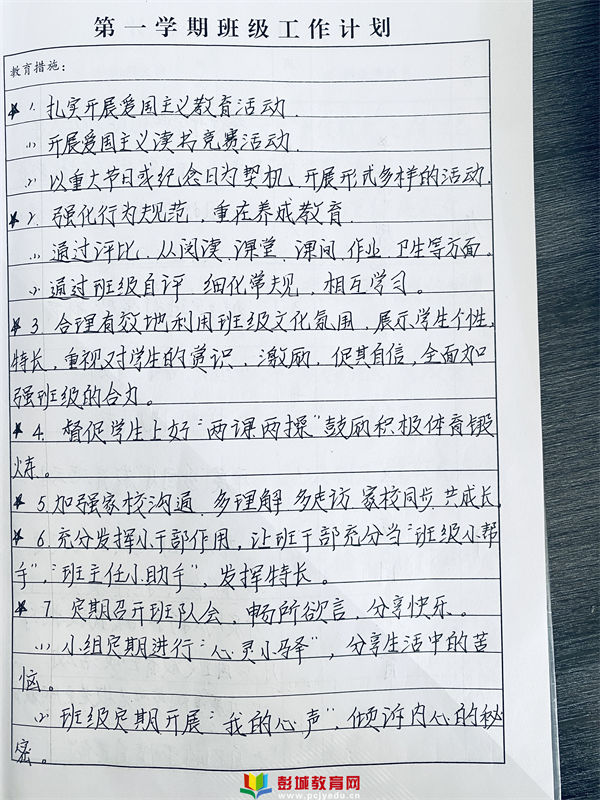 第一学期班级工作计划
教育措施：
★ 1. 扎实开展爱国主义教育活动.
(1) 开展爱国主义读书竞赛活动.
(2) 以重大节日或纪念日为契机、开展形式多样的活动.
★ 2. 强化行为规范，重在养成教育.
(1) 通过评比、从阅读、课堂、课间、作业、卫生等方面。
(2) 通过班级自评、细化常规，相互学习。
★ 3. 合理有效地利用班级文化氛围，展示学生个性、
特长，重视对学生的赏识、激励，促其自信，全面加
强班级的合力。
★ 4. 督促学生上好“两课两操”鼓励积极体育锻
炼。
★ 5. 加强家校沟通、多理解、多走访、家校同步、共成长.
★ 6. 充分发挥小干部作用，让班干部充分当“班级小帮
手”，“班主任小助手”，发挥特长。
★ 7. 定期召开班队会，畅所欲言，分享快乐。
(1) 小组定期进行“心灵小驿”，分享生活中的苦
恼。
(2) 班级定期开展“我的心声”，倾诉内心的秘
密。
彭城教育网
www.pcjyedu.cn